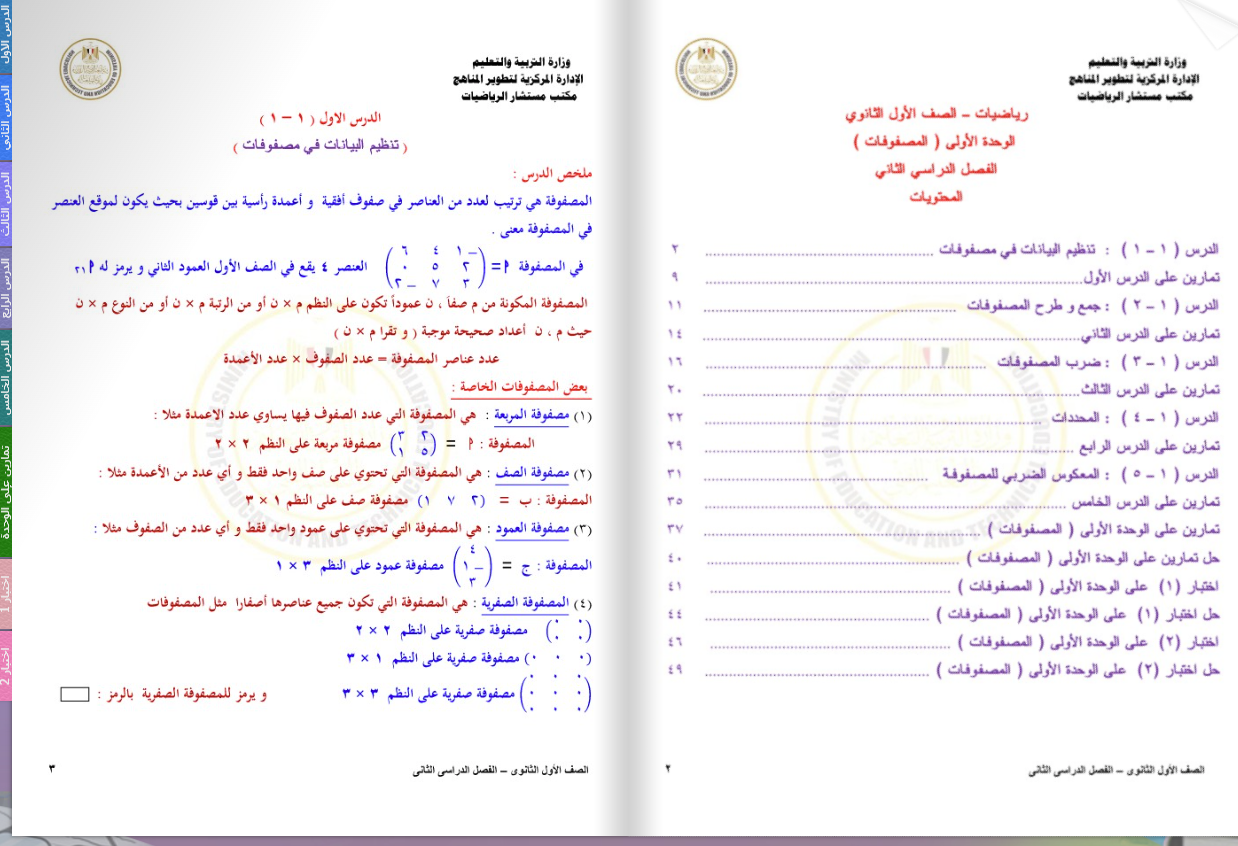 وزارة التربية والتعليم
الإدارة المركزية لتطوير المناهج
مكتب مستشار الرياضيات
رياضيات – الصف الأول الثانوي
الوحدة الأولى ( المصفوفات )
الفصل الدراسي الثاني
المحتويات
الدرس ( ١ – ١ ) : تنظيم البيانات في مصفوفات ........................ ٢
تمارين على الدرس الأول........................ ٩
الدرس ( ١ – ٢ ) : جمع و طرح المصفوفات ........................ ١١
تمارين على الدرس الثاني........................ ١٤
الدرس ( ١ – ٣ ) : ضرب المصفوفات ........................ ١٦
تمارين على الدرس الثالث........................ ٢٠
الدرس ( ١ – ٤ ) : المحددات ........................ ٢٢
تمارين على الدرس الرابع ........................ ٢٩
الدرس ( ١ – ٥ ) : المعكوس الضربي للمصفوفة ........................ ٣١
تمارين على الدرس الخامس ........................ ٣٥
تمارين على الوحدة الأولى ( المصفوفات ) ........................ ٣٧
حل تمارين على الوحدة الأولى ( المصفوفات ) ........................ ٤٠
اختبار (١) على الوحدة الأولى ( المصفوفات ) ........................ ٤١
حل اختبار (١) على الوحدة الأولى ( المصفوفات ) ........................ ٤٤
اختبار (٢) على الوحدة الأولى ( المصفوفات ) ........................ ٤٦
حل اختبار (٢) على الوحدة الأولى ( المصفوفات ) ........................ ٤٩
الصف الأول الثانوى – الفصل الدراسى الثانى
٢
وزارة التربية والتعليم
الإدارة المركزية لتطوير المناهج
مكتب مستشار الرياضيات
الدرس الاول ( ١ – ١ )
( تنظيم البيانات في مصفوفات )
ملخص الدرس :
المصفوفة هي ترتيب لعدد من العناصر في صفوف أفقية و أعمدة رأسية بين قوسين بحيث يكون لموقع العنصر
في المصفوفة معنى .
في المصفوفة أ = ( –١ ٤ ٦ / ٢ ٥ ٠ / ٣ ٧ –٢ ) العنصر ٤ يقع في الصف الأول العمود الثاني و يرمز له أ٢١
المصفوفة المكونة من م صفاً ، ن عموداً تكون على النظم م × ن أو من الرتبة م × ن أو من النوع م × ن
حيث م ، ن أعداد صحيحة موجبة ( و تقرا م × ن )
عدد عناصر المصفوفة = عدد الصفوف × عدد الأعمدة
بعض المصفوفات الخاصة :
(١) مصفوفة المربعة : هي المصفوفة التي عدد الصفوف فيها يساوي عدد الاعمدة مثلا :
المصفوفة : أ = ( ٢ ٣ / ٥ ١ ) مصفوفة مربعة على النظم ٢ × ٢
(٢) مصفوفة الصف : هي المصفوفة التي تحتوي على صف واحد فقط و أي عدد من الأعمدة مثلا :
المصفوفة : ب = (٢ ٧ ١) مصفوفة صف على النظم ١ × ٣
(٣) مصفوفة العمود : هي المصفوفة التي تحتوي على عمود واحد فقط و أي عدد من الصفوف مثلا :
المصفوفة : ج = ( ٤ / –١ / ٣ ) مصفوفة عمود على النظم ٣ × ١
(٤) المصفوفة الصفرية : هي المصفوفة التي تكون جميع عناصرها أصفارا مثل المصفوفات
( ٠ ٠ / ٠ ٠ ) مصفوفة صفرية على النظم ٢ × ٢
(٠ ٠ ٠) مصفوفة صفرية على النظم ١ × ٣
( ٠ ٠ ٠ / ٠ ٠ ٠ / ٠ ٠ ٠ ) مصفوفة صفرية على النظم ٣ × ٣ و يرمز للمصفوفة الصفرية بالرمز :
الصف الأول الثانوى – الفصل الدراسى الثانى
٣
الدرس الأول
الدرس الثاني
الدرس الثالث
الدرس الرابع
الدرس الخامس
تمارين على الوحدة
اختبار 1
اختبار 2
MINISTRY OF EDUCATION AND TECHNICAL EDUCATION